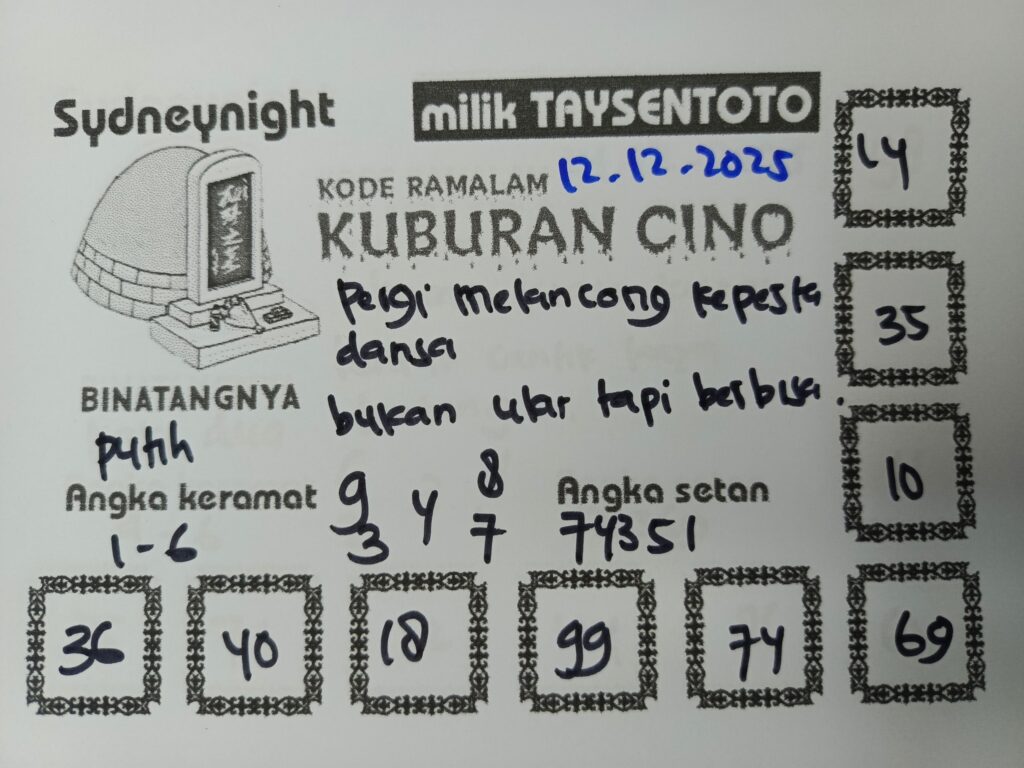 Sydneynight
milik TAYSENTOTO
KODE RAMALAM 12.12.2025
KUBURAN CINO
Pergi melancong kepesta
dansa
bukan ular tapi berbisa.
BINATANGNYA
putih
Angka keramat
1-6
9 4 8
3 7
Angka setan
74351
14
35
10
36 40 18 99 74 69